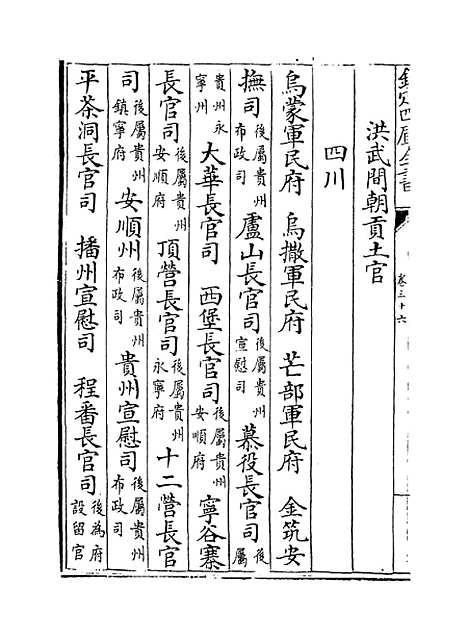 欽定四庫全書
卷三十六
洪武間朝貢土官
四川
烏蒙軍民府　烏撒軍民府　芒部軍民府　金筑安
撫司後屬貴州布政司　盧山長官司宣慰司　慕役長官司後屬
貴州永寧州　大華長官司　西堡長官司後屬貴州安順府　寧谷寨
長官司後屬貴州安順府　頂營長官司後屬貴州永寧府　十二營長官
司後屬貴州鎮寧府　安順州後屬貴州布政司　貴州宣慰司後屬貴州布政司
平茶洞長官司　播州宣慰司　程番長官司後為府設留官